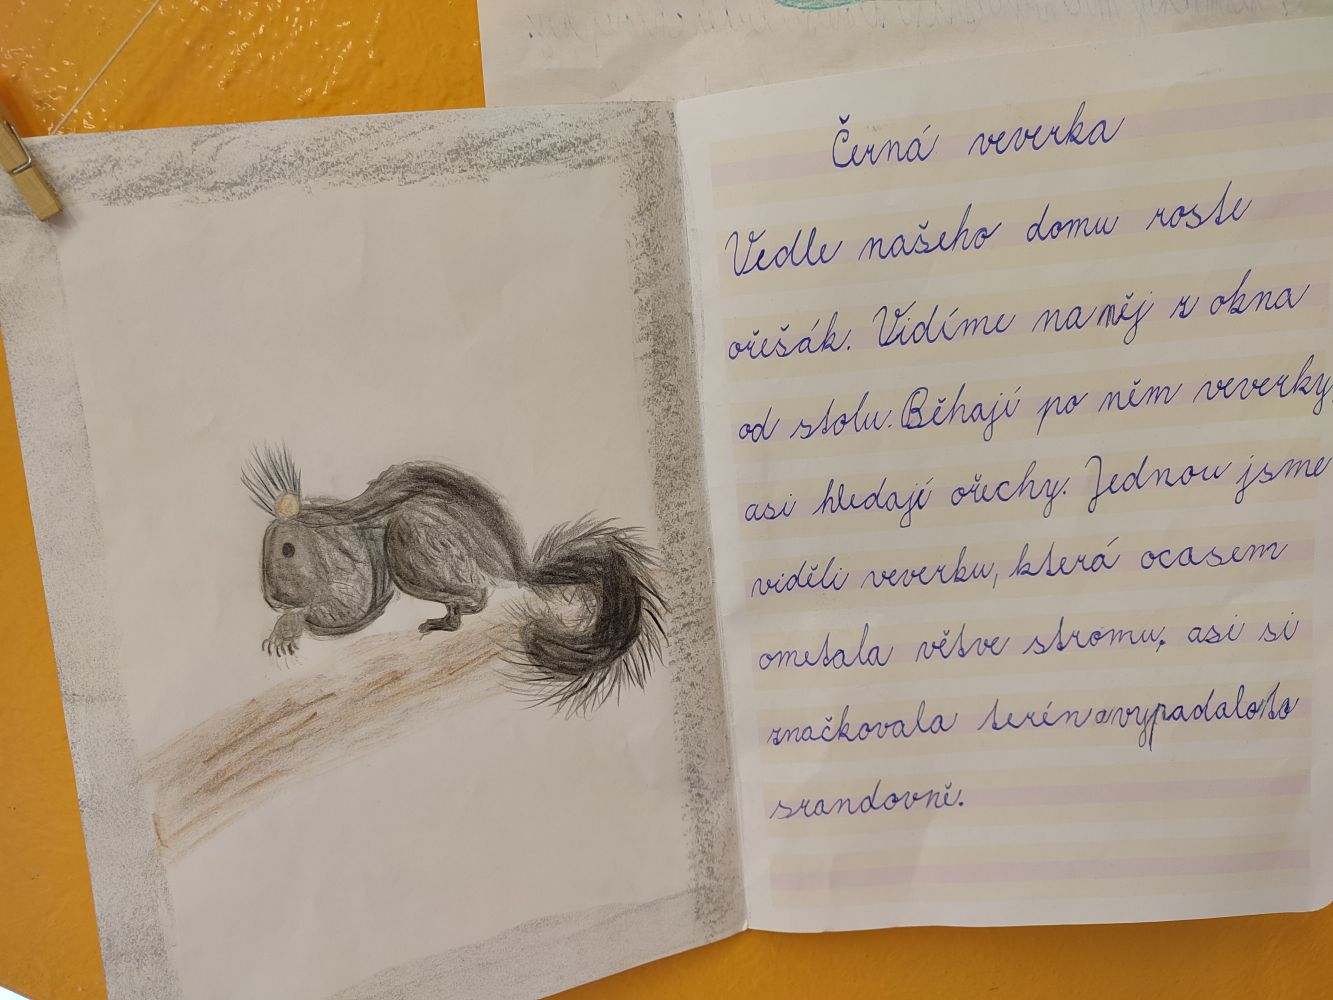 Černá veverka
Vedle našeho domu roste
ořešák. Vidíme na něj z okna
od stolu. Běhají po něm veverky
asi hledají ořechy. Jednou jsme
viděli veverku, která ocasem
ometala větve stromu, asi si
značkovala terén a vypadalo to
srandovně.